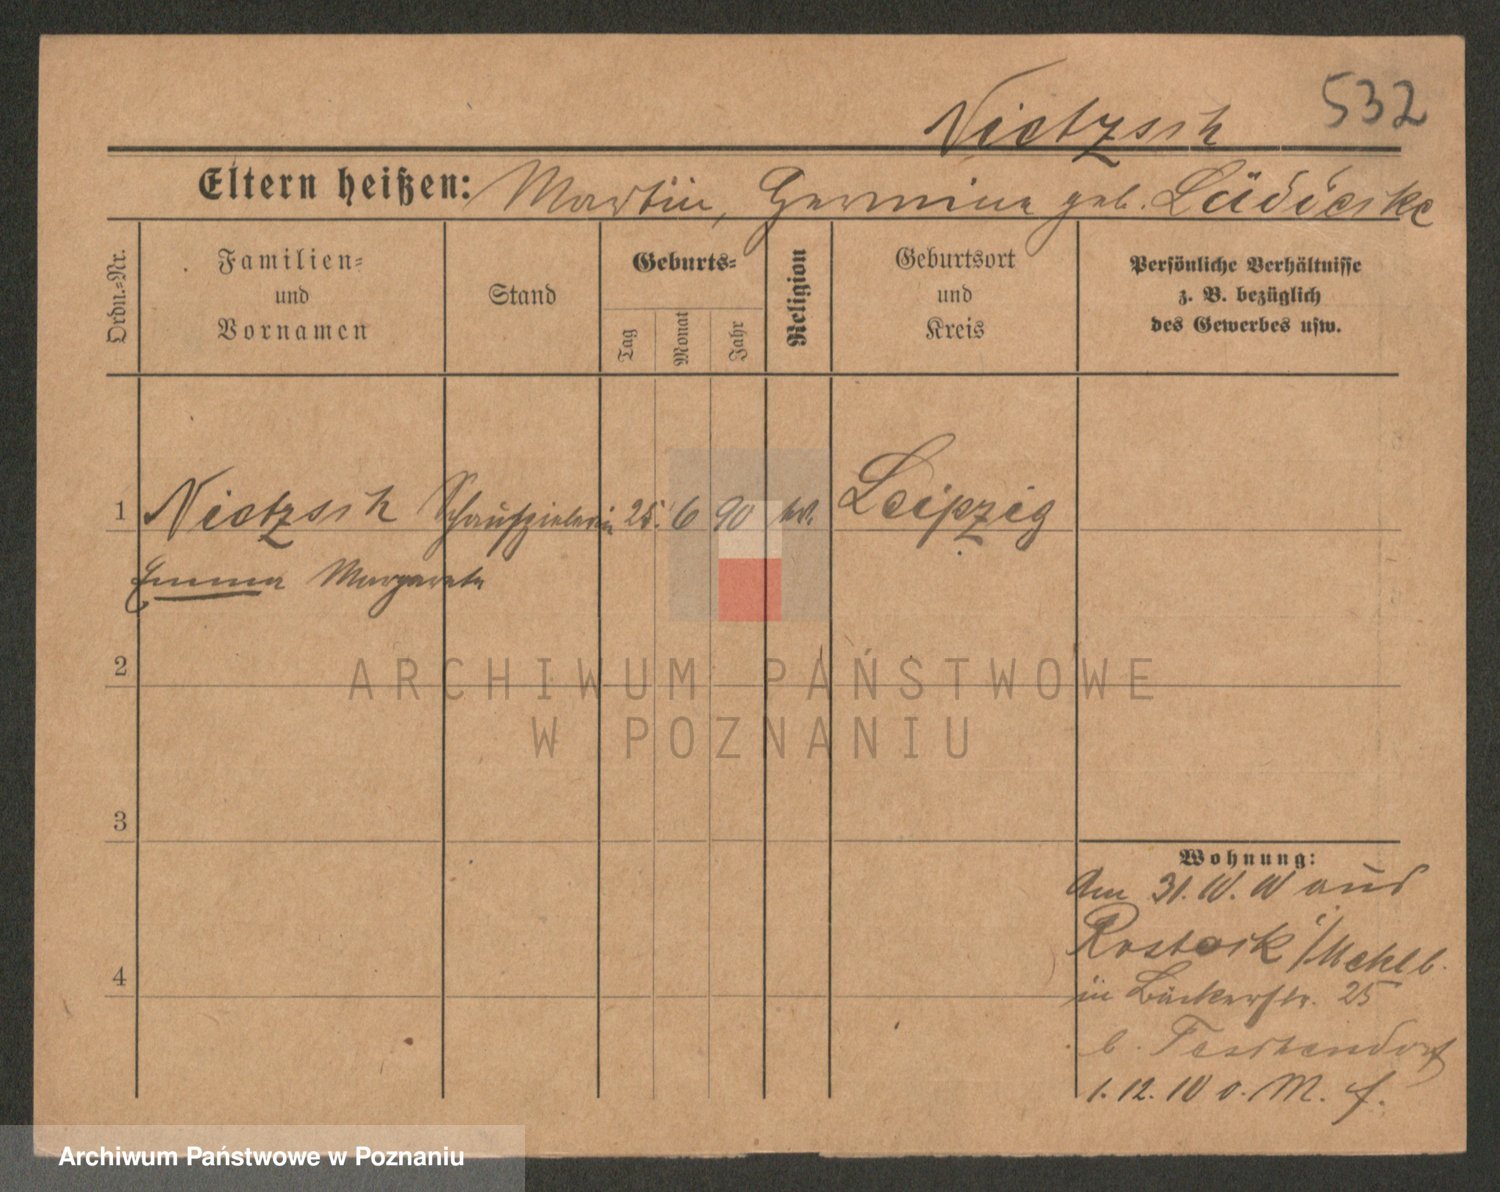 532
Nietzsch
Eltern heißen: Martin, Hermine geb. Lüdicke
Ordn.-Nr.
Familien- und Vornamen
Stand
Geburts-
Tag
Monat
Jahr
Religion
Geburtsort und Kreis
Persönliche Verhältnisse
z. B. bezüglich
des Gewerbes usw.
1 Nietzsch Schauspielerin 25. 6 90 Leipzig
Emma Margareta
2
ARCHIWUM PAŃSTWOWE
W POZNANIU
3
Wohnung:
Am 31. aus
Rostock i/Meklb.
in Bäckerstr. 25
4
b. Teschendorf
1. 12. 10 o. M. f.
Archiwum Państwowe w Poznaniu